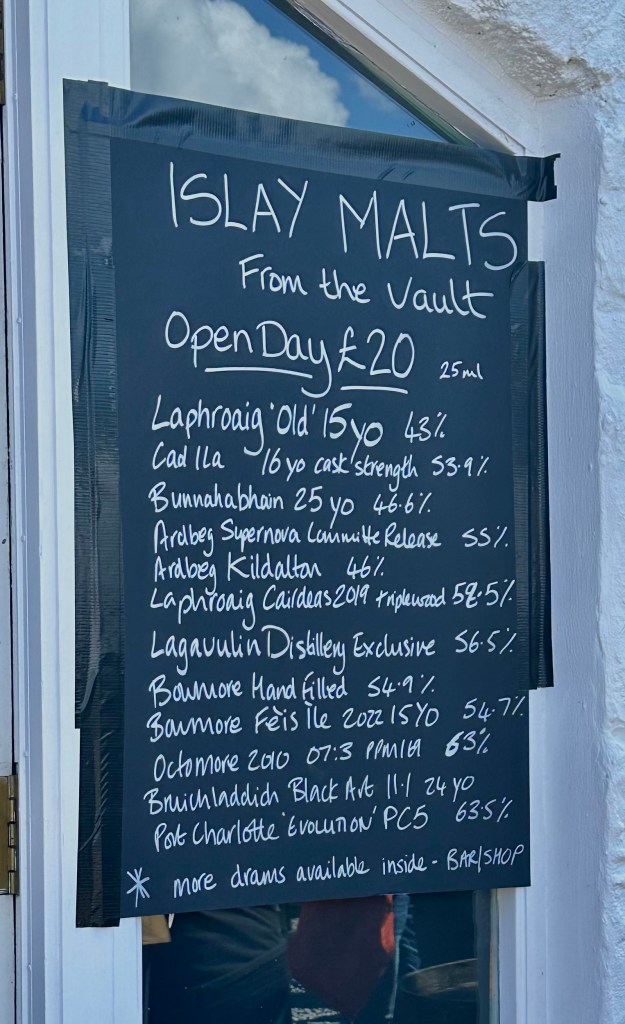 ISLAY MALTS
From the Vault
Open Day £20 25ml
Laphroaig 'Old' 15yo 43%
Caol Ila 16 yo cask strength 53.9%
Bunnahabhain 25 yo 46.6%
Ardbeg Supernova Committe Release 55%
Ardbeg Kildalton 46%
Laphroaig Cairdeas 2019 triplewood 59.5%
Lagavulin Distillery Exclusive 56.5%
Bowmore Hand filled 54.9%
Bowmore Fèis Ìle 2022 15YO 54.7%
Octomore 2010 07:3 PPM169 63%
Bruichladdich Black Art 11.1 24 yo
Port Charlotte 'EVOLUTION' PC5 63.5%
* more drams available inside - BAR/SHOP